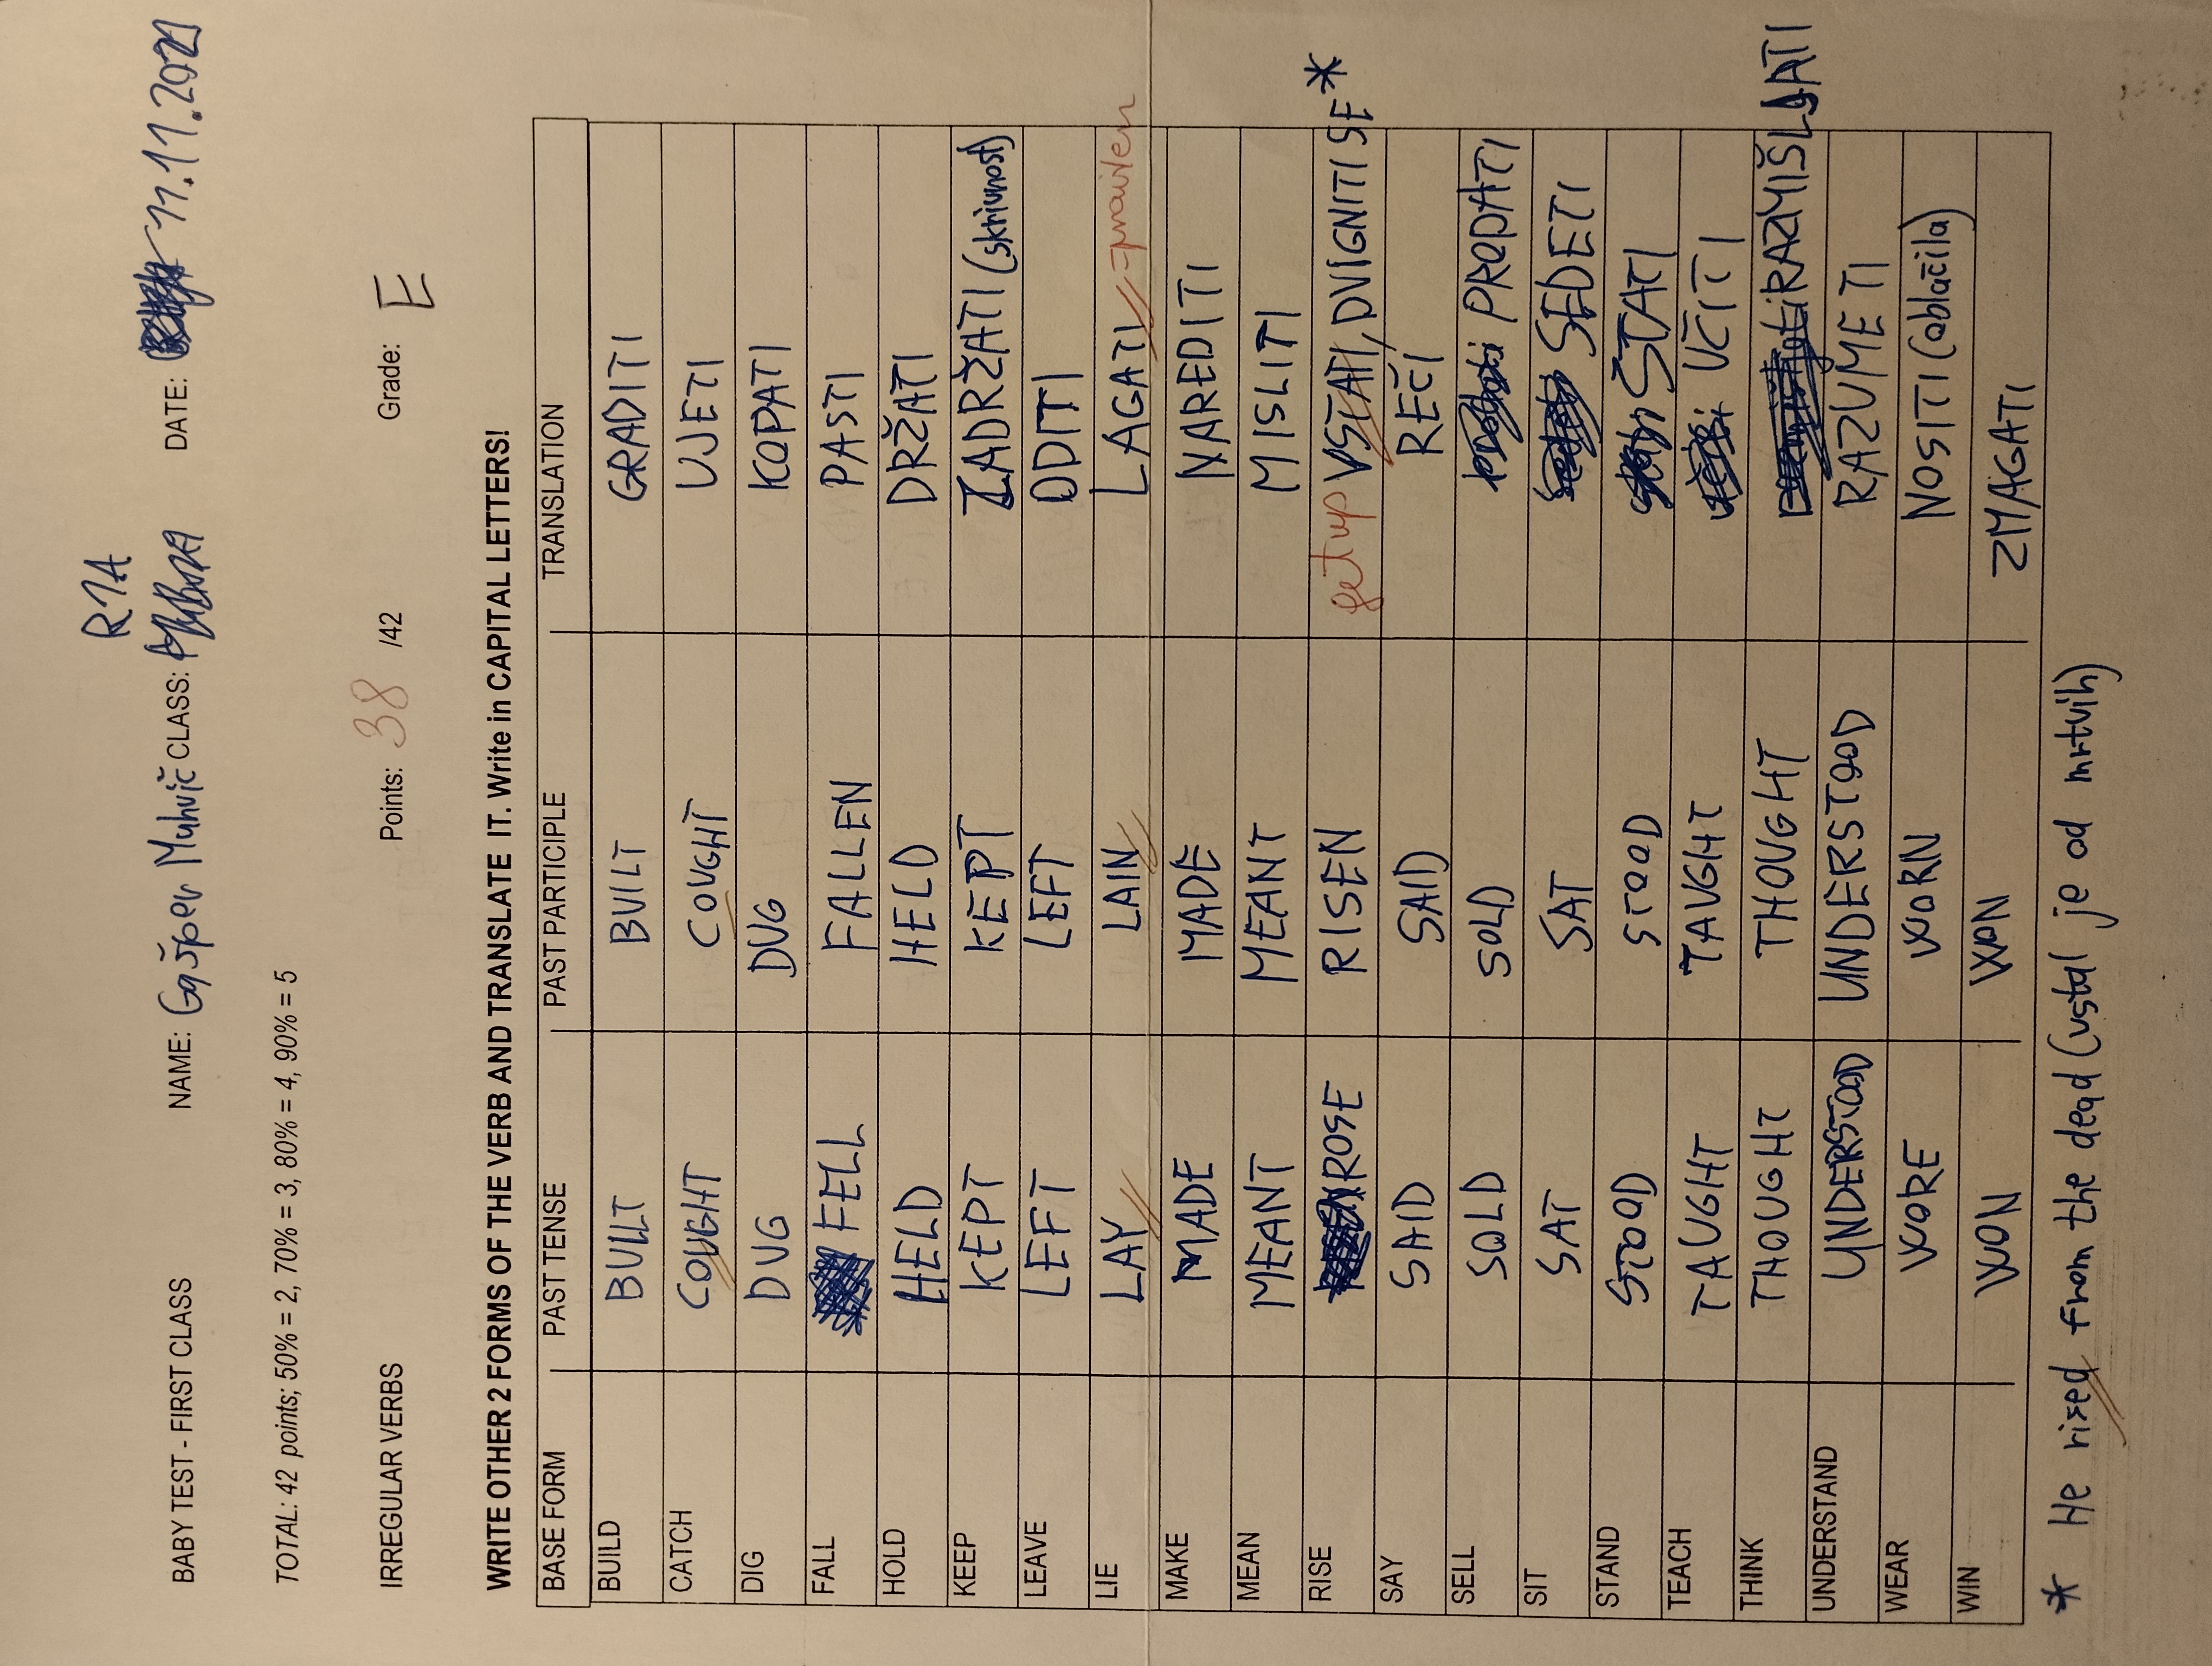 R1A
BABY TEST - FIRST CLASS NAME: Gašper Muhvič CLASS: DATE: 11.11.2021
TOTAL: 42 points; 50% = 2, 70% = 3, 80% = 4, 90% = 5
IRREGULAR VERBS Points: 38 /42 Grade: E
WRITE OTHER 2 FORMS OF THE VERB AND TRANSLATE IT. Write in CAPITAL LETTERS!
BASE FORM PAST TENSE PAST PARTICIPLE TRANSLATION
BUILD BUILT BUILT GRADITI
CATCH COUGHT COUGHT UJETI
DIG DUG DUG KOPATI
FALL FELL FALLEN PASTI
HOLD HELD HELD DRŽATI
KEEP KEPT KEPT ZADRŽATI (skrivnost)
LEAVE LEFT LEFT ODITI
LIE LAY LAIN LAGATI =pravilen
MAKE MADE MADE NAREDITI
MEAN MEANT MEANT MISLITI
RISE ROSE RISEN get up VSTATI, DVIGNITI SE *
SAY SAID SAID REČI
SELL SOLD SOLD PRODATI
SIT SAT SAT SEDETI
STAND STOOD STOOD STATI
TEACH TAUGHT TAUGHT UČITI
THINK THOUGHT THOUGHT RAZMIŠLJATI
UNDERSTAND UNDERSTOOD UNDERSTOOD RAZUMETI
WEAR WORE WORN NOSITI (oblačila)
WIN WON WON ZMAGATI
* He rised from the dead (vstal je od mrtvih)